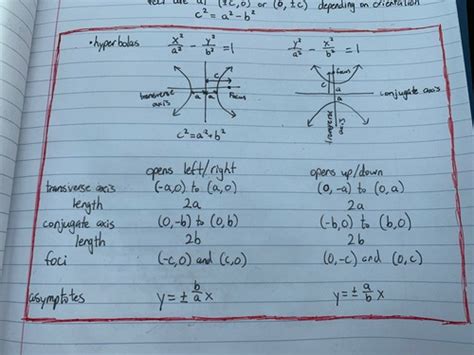 foci are at (±c,0) or (0,±c) depending on orientation
c² = a² - b²
• hyperbolas x²/a² - y²/b² = 1 y²/a² - x²/b² = 1
c focus
transverse axis a a focus
a a conjugate axis
transverse axis
c² = a² + b²
opens left/right opens up/down
transverse axis (-a,0) to (a,0) (0,-a) to (0,a)
length 2a 2a
conjugate axis (0,-b) to (0,b) (-b,0) to (b,0)
length 2b 2b
foci (-c,0) and (c,0) (0,-c) and (0,c)
asymptotes y = ± b/a x y = ± a/b x